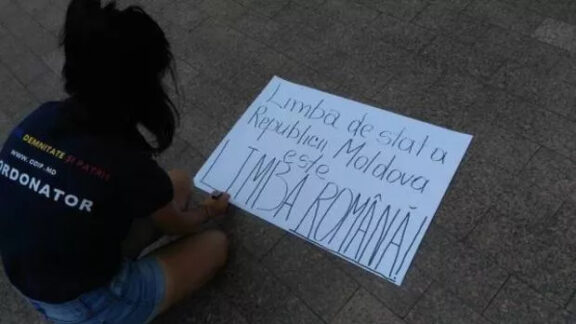 DEMNITATE ȘI PATRIE
WWW.ODIP.MD
Limba de stat a
Republicii Moldova
este
LIMBA ROMÂNĂ!